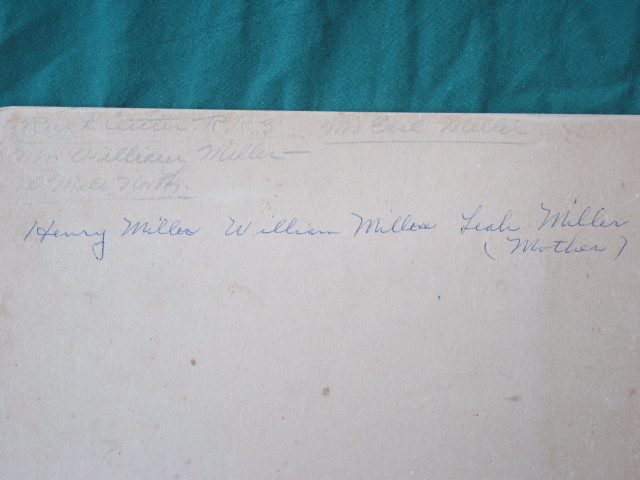 Center R.R.3 Mr Carl Miller
Mr William Miller
Mile North
Henry Miller William Miller Leah Miller
(Mother)